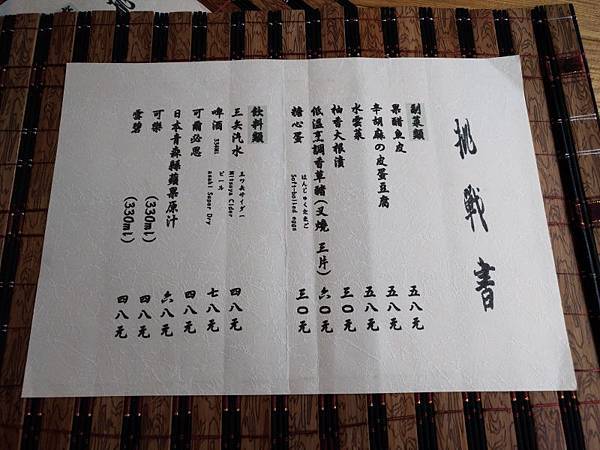 挑戰書
副菜類
果醋魚皮 五八元
辛胡麻の皮蛋豆腐 五八元
水雲菜 五八元
柚香大根漬 三〇元
低溫烹調香草豬(叉燒 三片) 六〇元
糖心蛋 はんじゅくたまご Soft-boiled eggs 三〇元
飲料類
三矢汽水 三ツ矢サイダー Mitsuya Cider 四八元
啤酒 350ML ビール asahi Super Dry 七八元
可爾必思 四八元
日本青森縣蘋果原汁 六八元
可樂 (330ml) 四八元
雪碧 (330ml) 四八元